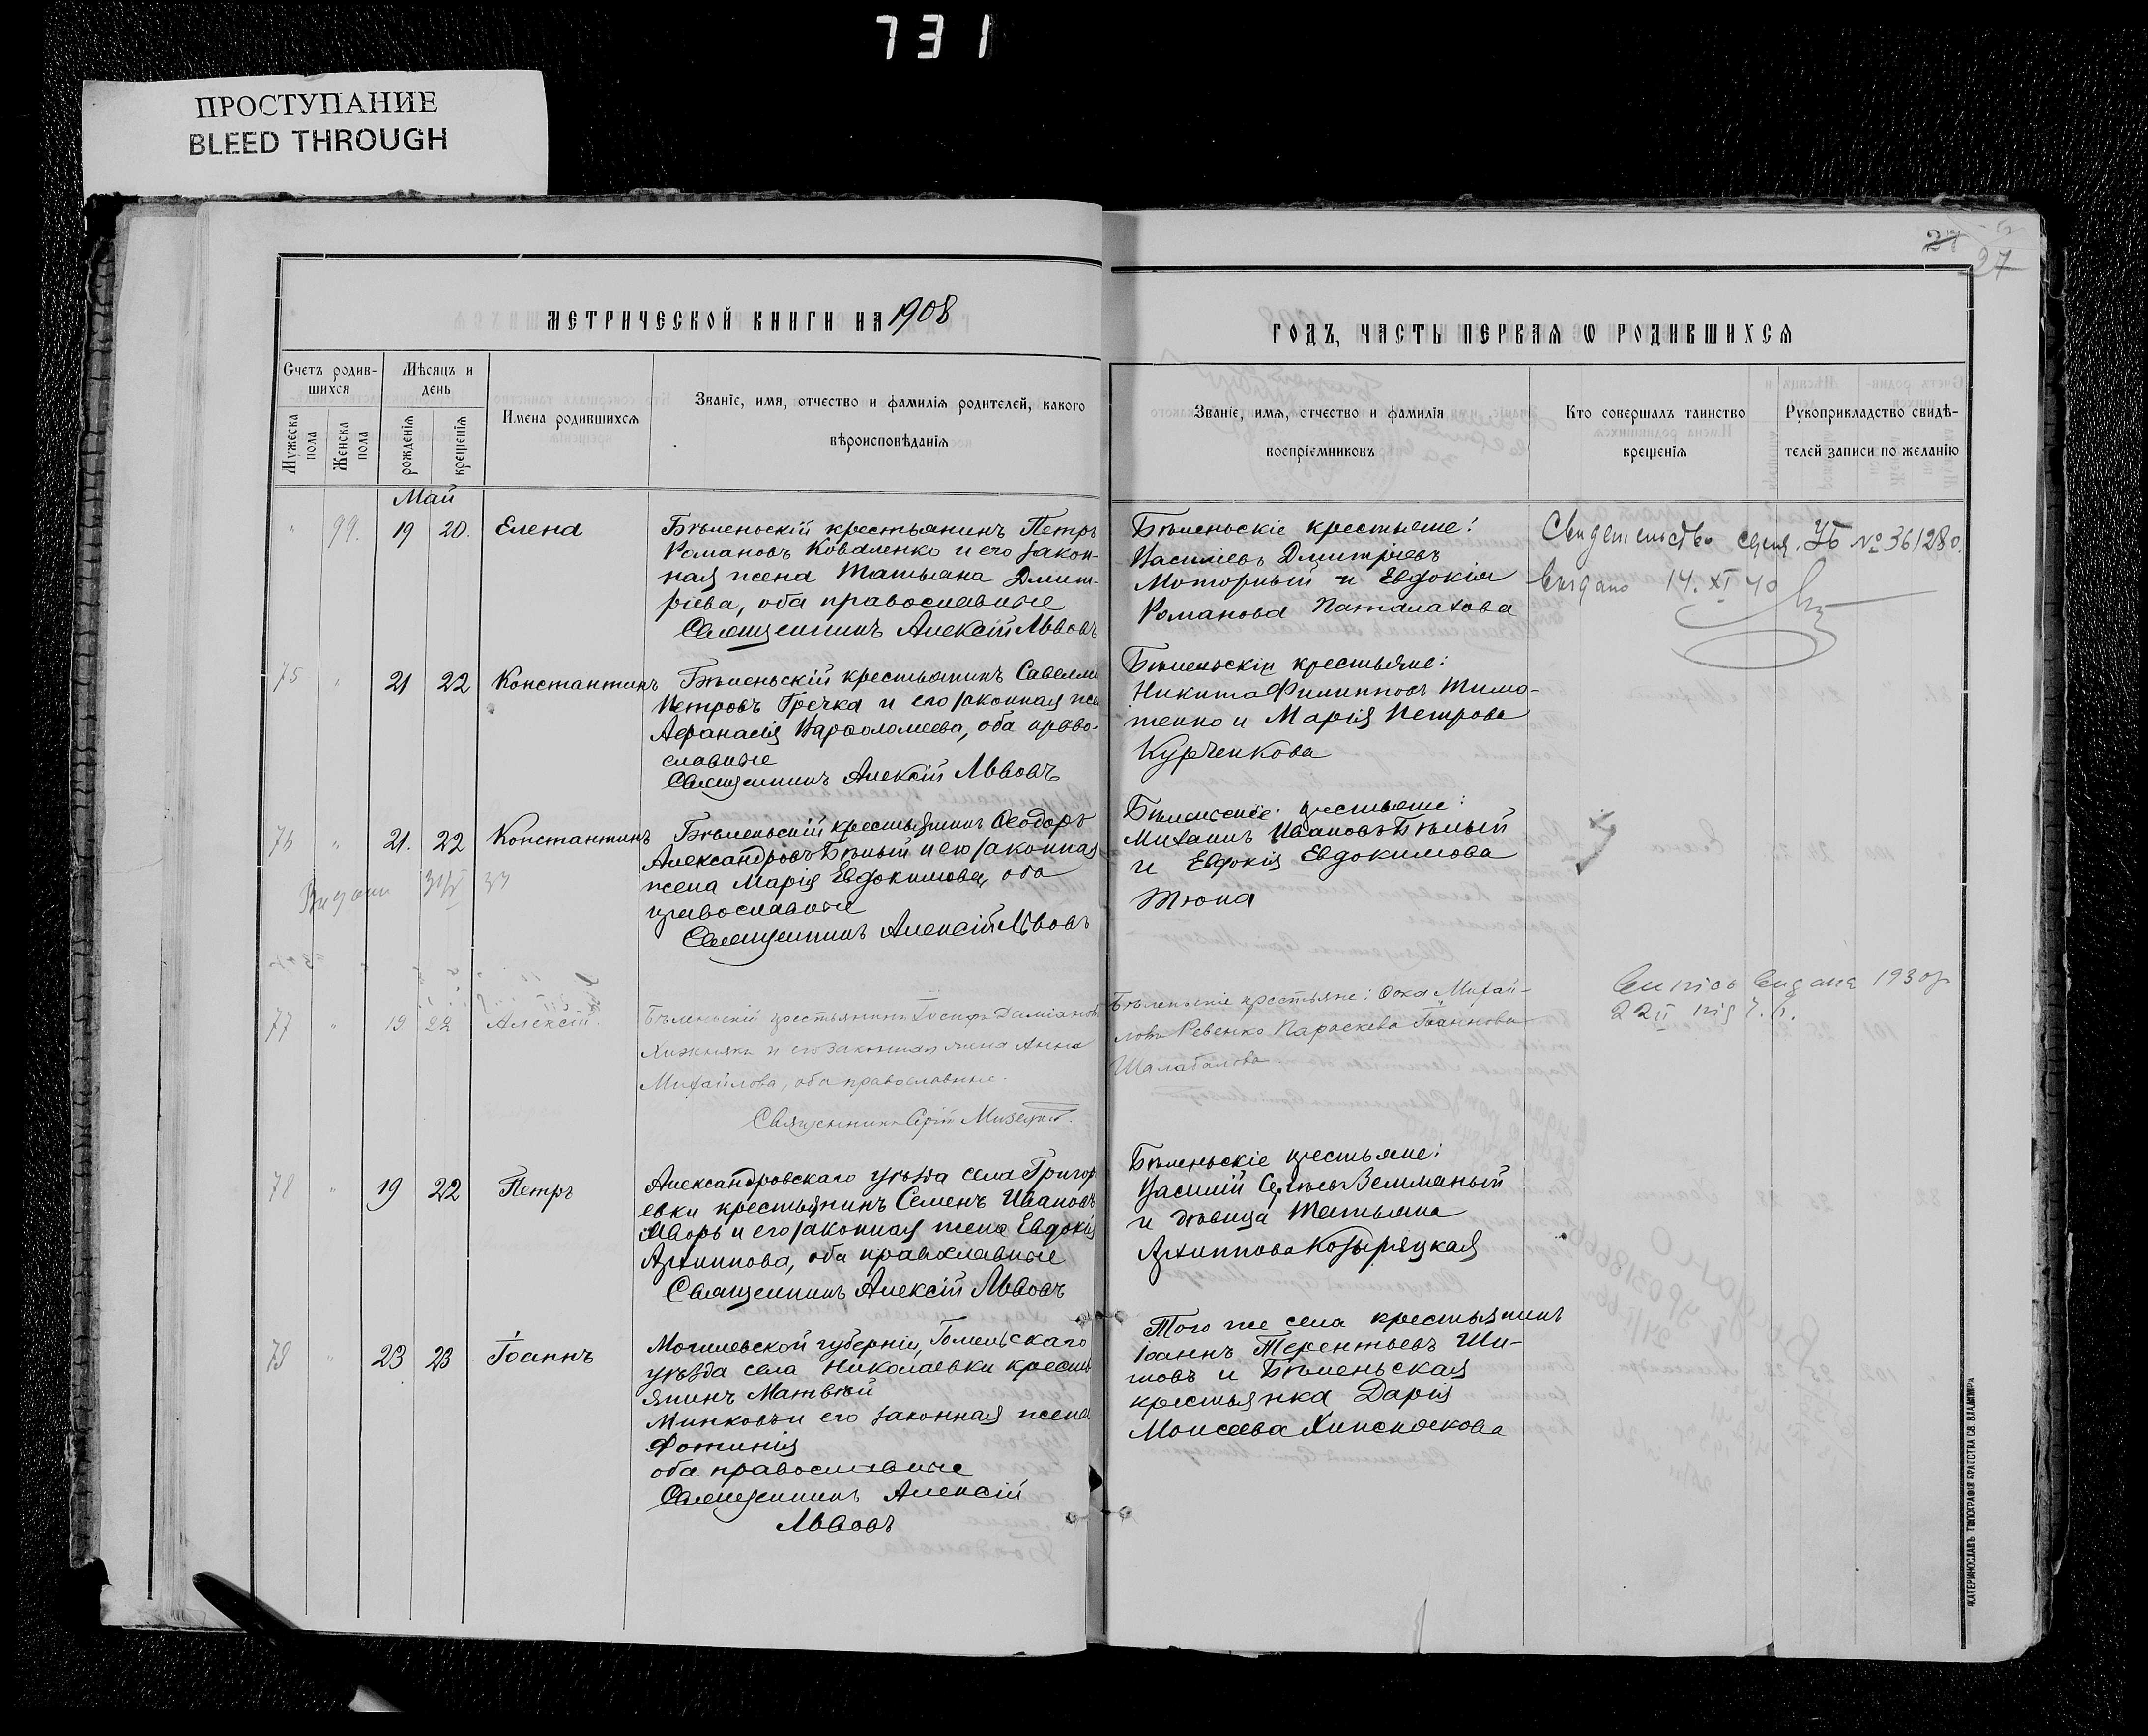 731
ПРОСТУПАНИЕ
BLEED THROUGH
27
27
МЕТРИЧЕСКОЙ КНИГИ НА 1908
ГОДЪ, ЧАСТЬ ПЕРВАЯ Ѡ РОДИВШИХСЯ
Счетъ родив-
шихся
Мужеска пола
Женска пола
Мѣсяцъ и
день
рожденія
крещенія
Имена родившихся
Званіе, имя, отчество и фамилія родителей, какого
вѣроисповѣданія
Званіе, имя, отчество и фамилія
воспріемниковъ
Кто совершалъ таинство
крещенія
Рукоприкладство свидѣ-
телей записи по желанію
Май
" 99. 19 20. Елена
Бѣленьскій крестьянинъ Петръ
Романовъ Коваленко и его закон-
ная жена Татьяна Дмит-
ріева, оба православные
Священникъ Алексій Львовъ
Бѣленьскіе крестьяне:
Василіевъ Дмитріевъ
Моторный и Евдокія
Романова Паталахова
Свидетельство УБ № 361280.
выдано 14. XI 40
75 " 21 22 Константинъ
Бѣленьскій крестьянинъ Савелій
Петровъ Гречка и его законная же
Аѳанасія Варѳоломеева, оба право-
славные
Священникъ Алексій Львовъ
Бѣленьскіе крестьяне:
Никита Филипповъ Тимо-
шенко и Марія Петрова
Курченкова
76 " 21. 22 Константинъ
Бѣленьскій крестьянинъ Ѳеодоръ
Александровъ Бѣлый и его законная
жена Марія Евдокимова, оба
православные
Священникъ Алексій Львовъ
Бѣленьскіе крестьяне:
Михаилъ Ивановъ Бѣлый
и Евдокія Евдокимова
Тюпа
77 " 19 22 Алексій.
Бѣленьскій крестьянинъ Іосифъ Даміановъ
Хижнякъ и его законная жена Анна
Михайлова, оба православные.
Священникъ
Бѣленьскіе крестьяне: Ѳока Михай-
ловъ Ревенко Параскева Іоаннова
Шалабалова
видана 1930р
78 " 19 22 Петръ
Александровскаго уѣзда села Григор
евки крестьянинъ Семенъ Ивановъ
и его законная жена Евдокія
Архиппова, оба православные
Священникъ Алексій Львовъ
Бѣленьскіе крестьяне:
Василій
и дѣвица Татьяна
Архиппова Козырицкая
79 " 23 23 Іоаннъ
Могилевской губерніи, Гомельскаго
уѣзда села Николаевки кресть
янинъ Матвѣй
Минковъ и его законная жена
Фотинія
оба православные
Священникъ Алексій
Львовъ
Того же села крестьянинъ
Іоаннъ Терентьевъ Ши-
товъ и Бѣленьская
крестьянка Дарія
Моисеева
ЕКАТЕРИНОСЛАВЪ. ТИПОГРАФІЯ БРАТСТВА СВ. ВЛАДИМІРА